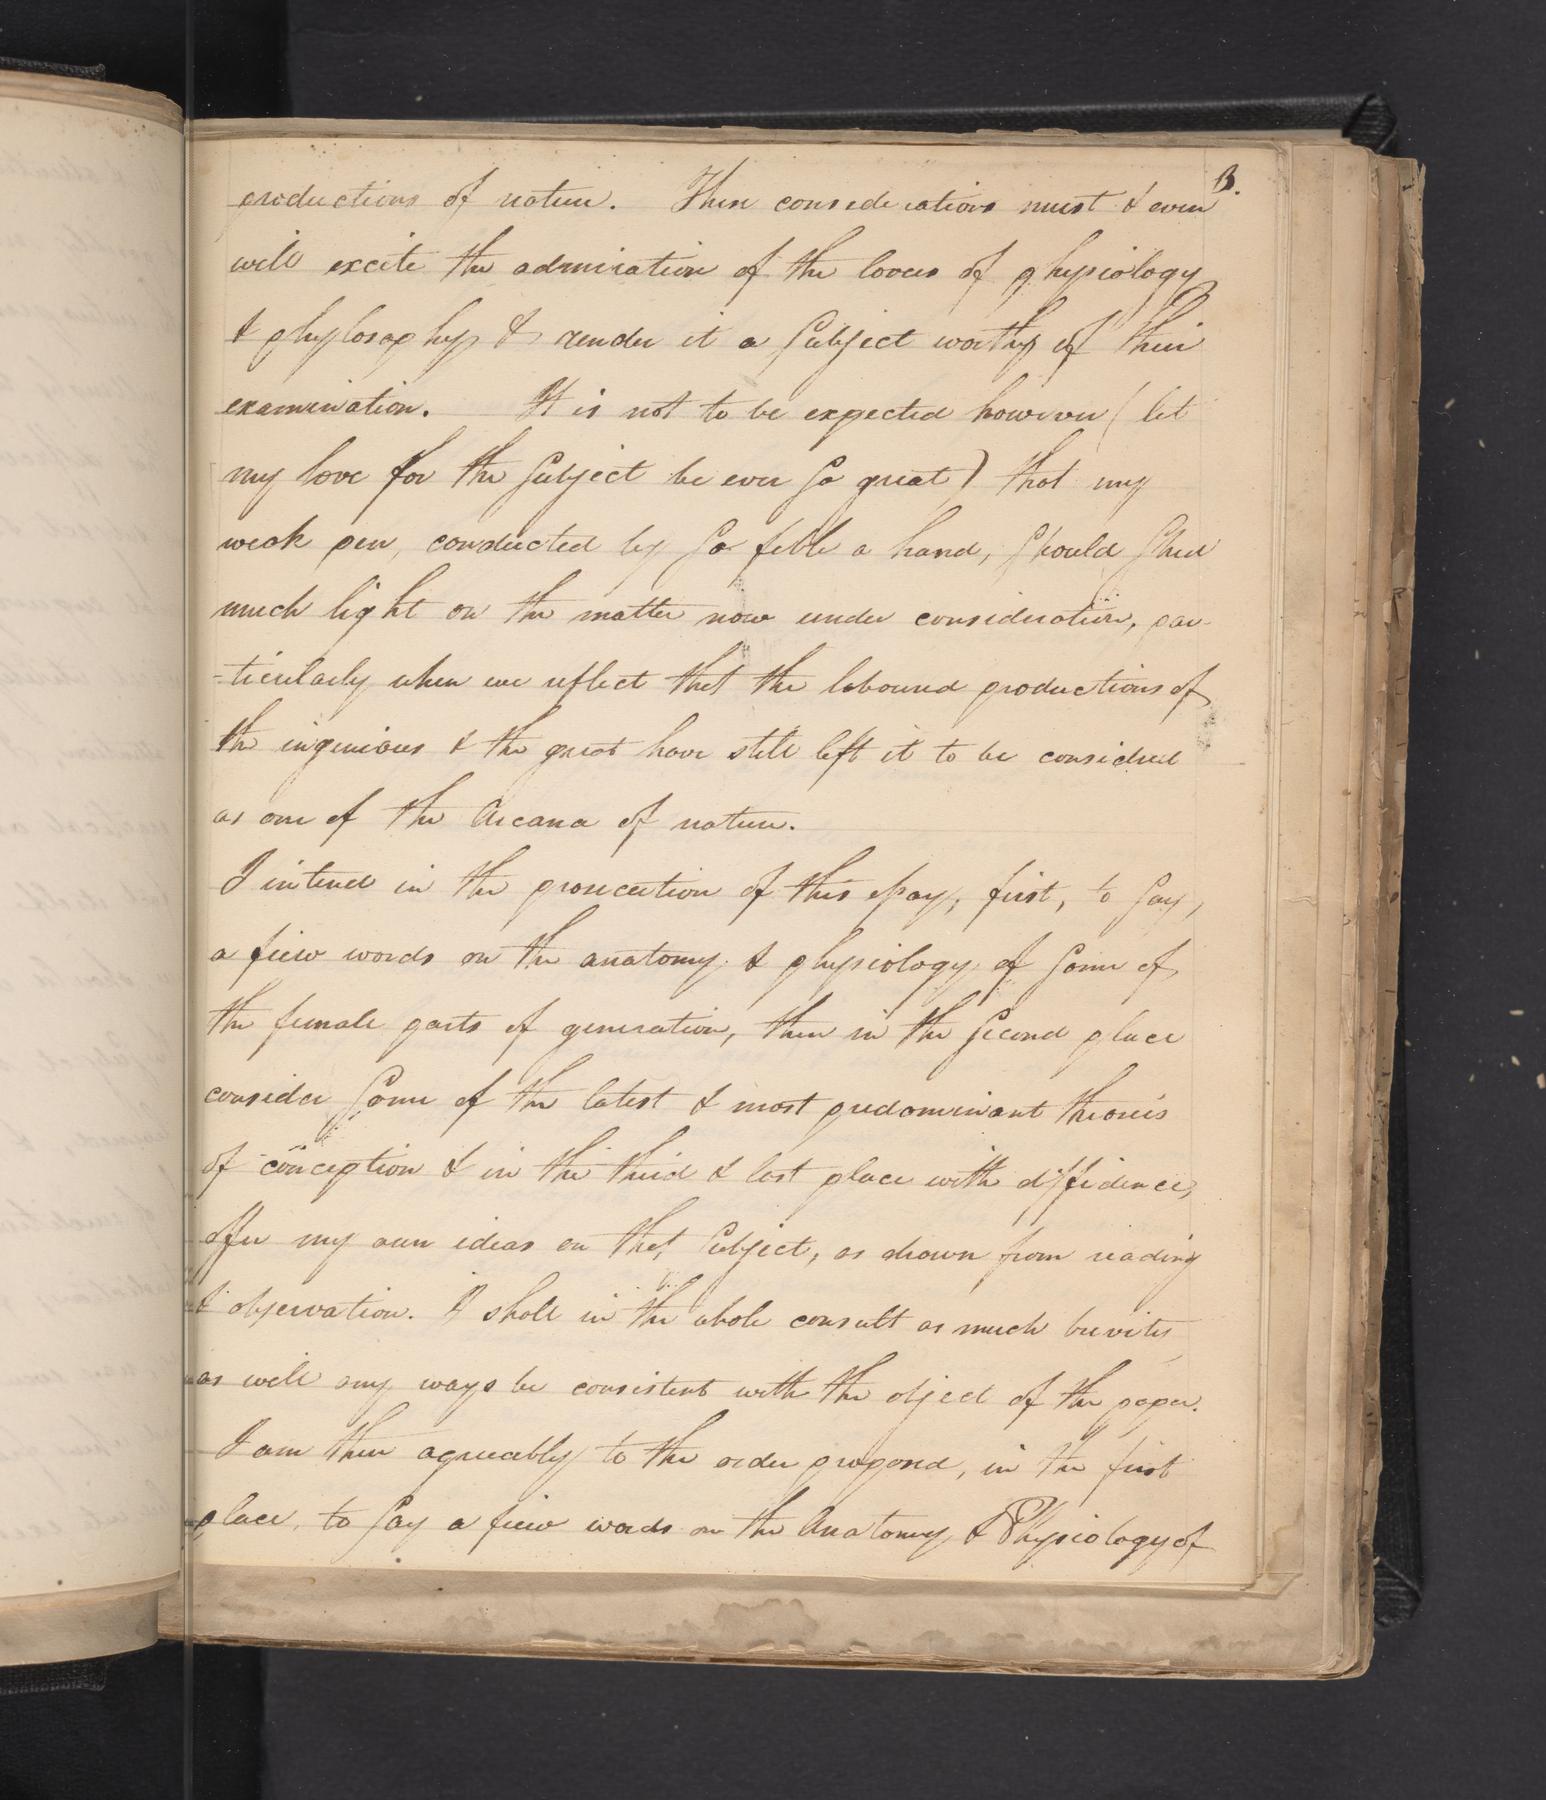 3.
productions of nature. These considerations must & ever
will excite the admiration of the lovers of physiology
& phylosophy & render it a subject worthy of their
examination. It is not to be expected however (let
my love for the subject be ever so great) that my
weak pen, conducted by so feble a hand, should shed
much light on the matter now under consideration, par-
-ticularly when we reflect that the laboured productions of
the ingenious & the great have still left it to be considred
as one of the Arcana of nature.
I intend in the prosecution of this essay, first, to say,
a fiew words on the anatomy & physiology of some of
the female parts of generation, then in the second place
consider some of the latest & most predominant theories
of conception & in the third & last place with diffidence,
offer my own ideas on that subject, as drawn from reading
& observation. I shall in the whole consult as much brevity
as will any ways be consistent with the object of the paper.
I am then agreeably to the order proposed, in the first
place, to say a fiew words on the Anatomy & Physiology of